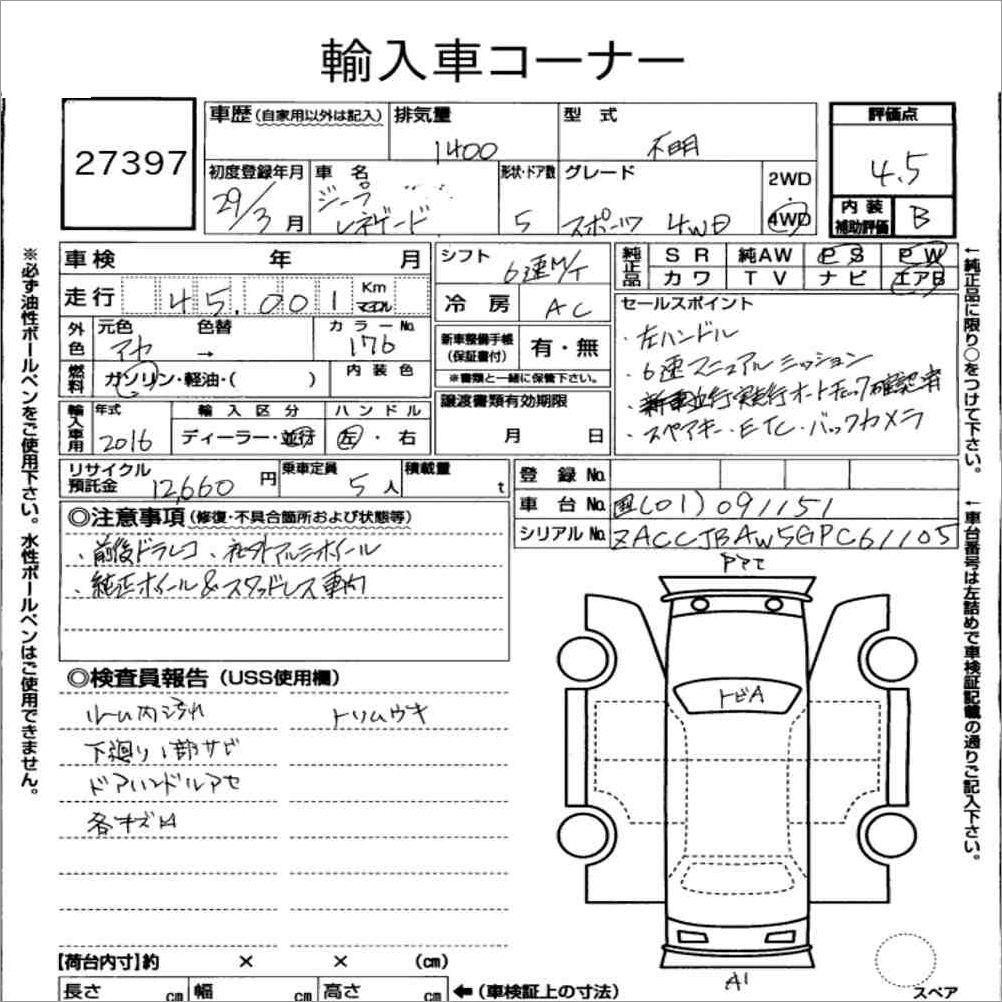 輸入車コーナー
27397
車歴(自家用以外は記入) 排気量 1400 型式 不明 評価点 4.5
初度登録年月 29/3月 車名 ジープ レネゲード 形状・ドア数 5 グレード スポーツ 4WD 2WD 4WD 内装補助評価 B
車検 年 月 シフト 6速M/T 純正品 SR 純AW PS PW
カワ TV ナビ エアB
走行 45,001 Km マイル 冷房 AC
セールスポイント
・左ハンドル
・6速マニュアルミッション
・スペアキー・ETC・バックカメラ
外色 元色 アカ 色替 → カラーNo. 176
新車整備手帳(保証書付) 有・無
※書類と一緒に保管下さい。
燃料 ガソリン・軽油・( ) 内装色
譲渡書類有効期限 月 日
輸入車用 年式 2016 輸入区分 ディーラー・並行 ハンドル 左・右
リサイクル預託金 12,660円 乗車定員 5人 積載量 t
登録No.
車台No. 国(01)091151
シリアルNo. ZACCJBAW5GPC61105
◎注意事項(修復・不具合箇所および状態等)
・前後ドラレコ ・社外アルミホイール
・純正ホイール&スタッドレス車内
◎検査員報告(USS使用欄)
ルーム内汚れ トリムウキ
下廻り1部サビ
ドアハンドルアセ
各キズ凹
トビA
A1
スペア
【荷台内寸】約 × × (cm)
長さ cm 幅 cm 高さ cm ←(車検証上の寸法)
※必ず油性ボールペンをご使用下さい。水性ボールペンはご使用できません。
←純正品に限り○をつけて下さい。
←車台番号は左詰めで車検証記載の通りご記入下さい。